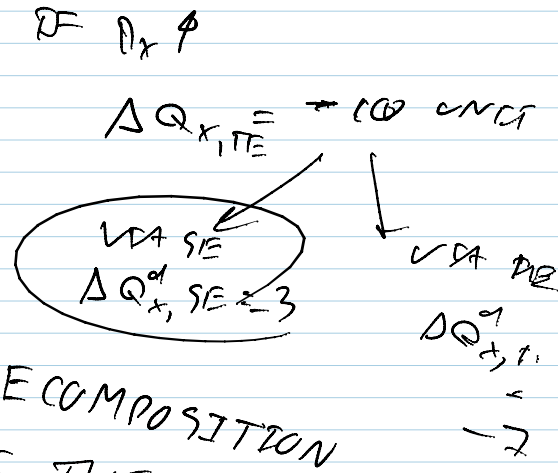 IF Px ↑
ΔQx,TE = -10 UNIT
VIA SE
ΔQᵈx, SE = -3
VIA
ΔQᵈx,
-7
ECOMPOSITION